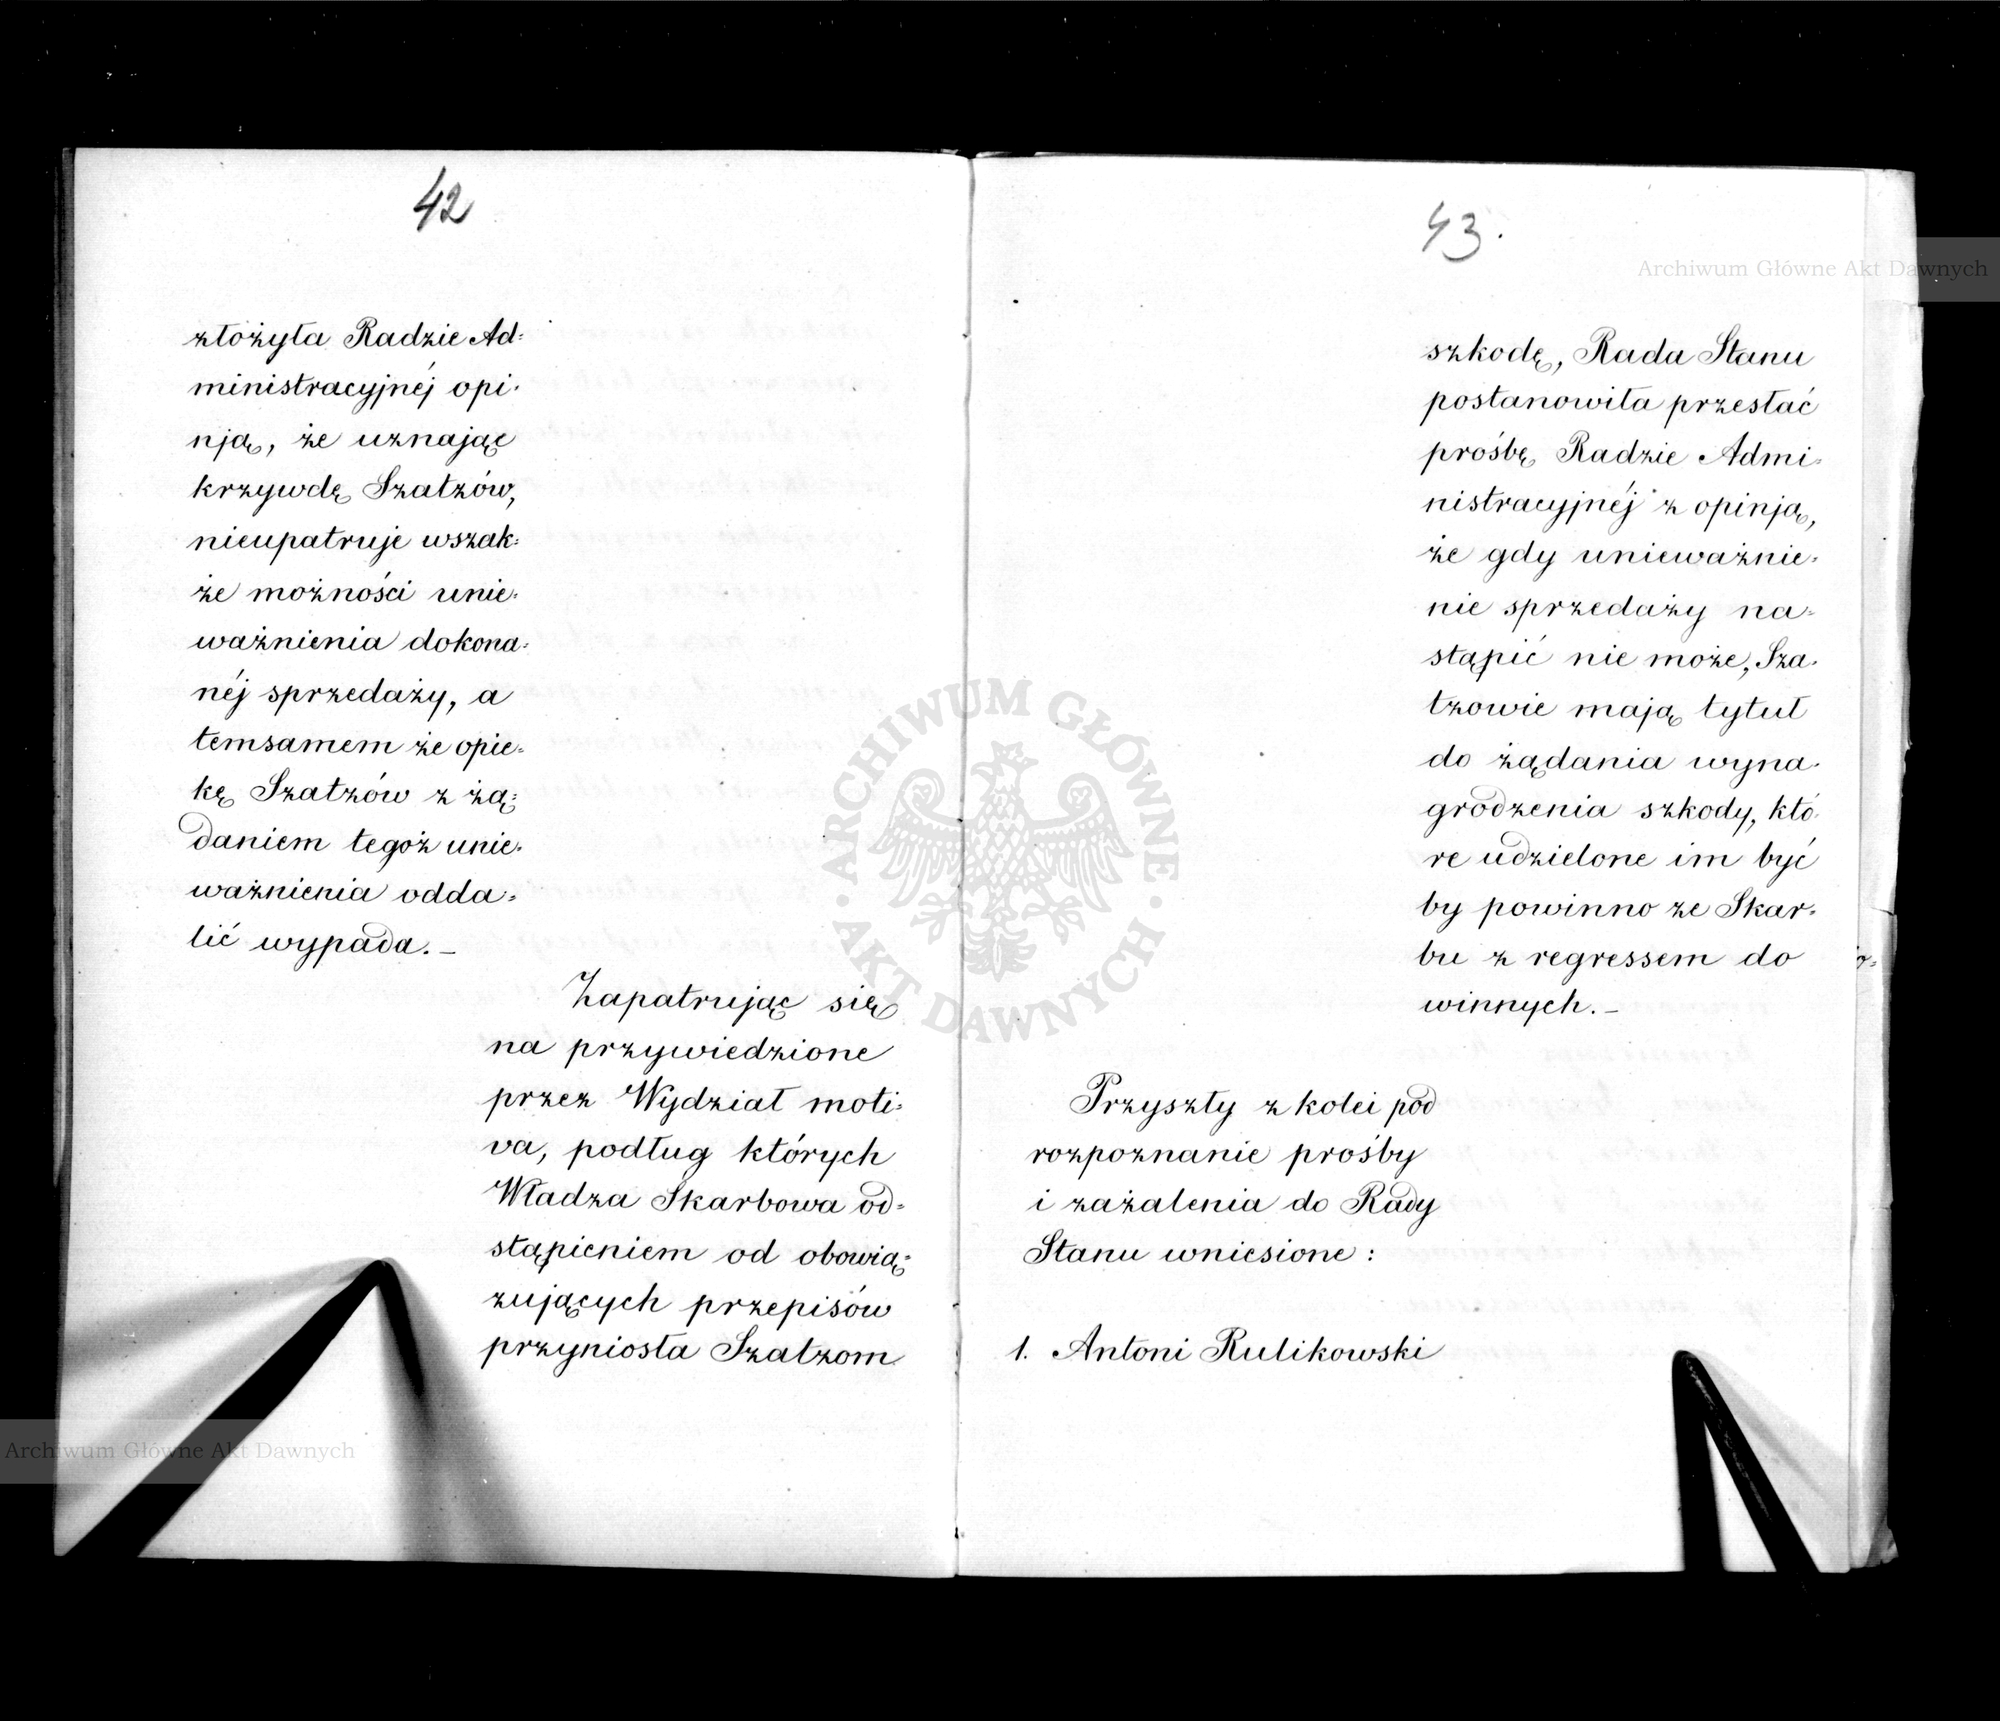 42
złożyła Radzie Ad=
ministracyjnéj opi=
nją, że uznając
krzywdę Szatzów,
nieupatruje wszak=
że możności unie=
ważnienia dokona=
néj sprzedaży, a
temsamem że opie=
kę Szatzów z żą=
daniem tegoż unie=
ważnienia odda=
lić wypada. _
Zapatrując się
na przywiedzione
przez Wydział moti=
va, podług których
Władza Skarbowa od=
stąpieniem od obowią=
zujących przepisów
przyniosła Szatzom
43.
szkodę, Rada Stanu
postanowiła przesłać
prośbę Radzie Admi=
nistracyjnéj z opinją,
że gdy unieważnie=
nie sprzedaży na=
stąpić nie może, Sza=
tzowie mają tytuł
do żądania wyna=
grodzenia szkody, któ=
re udzielone im być
by powinno ze Skar=
bu z regressem do
winnych. _
Przyszły z kolei pod
rozpoznanie prośby
i zażalenia do Rady
Stanu wniesione :
1. Antoni Rulikowski
Archiwum Główne Akt Dawnych
Archiwum Główne Akt Dawnych
ARCHIWUM GŁÓWNE · AKT DAWNYCH ·